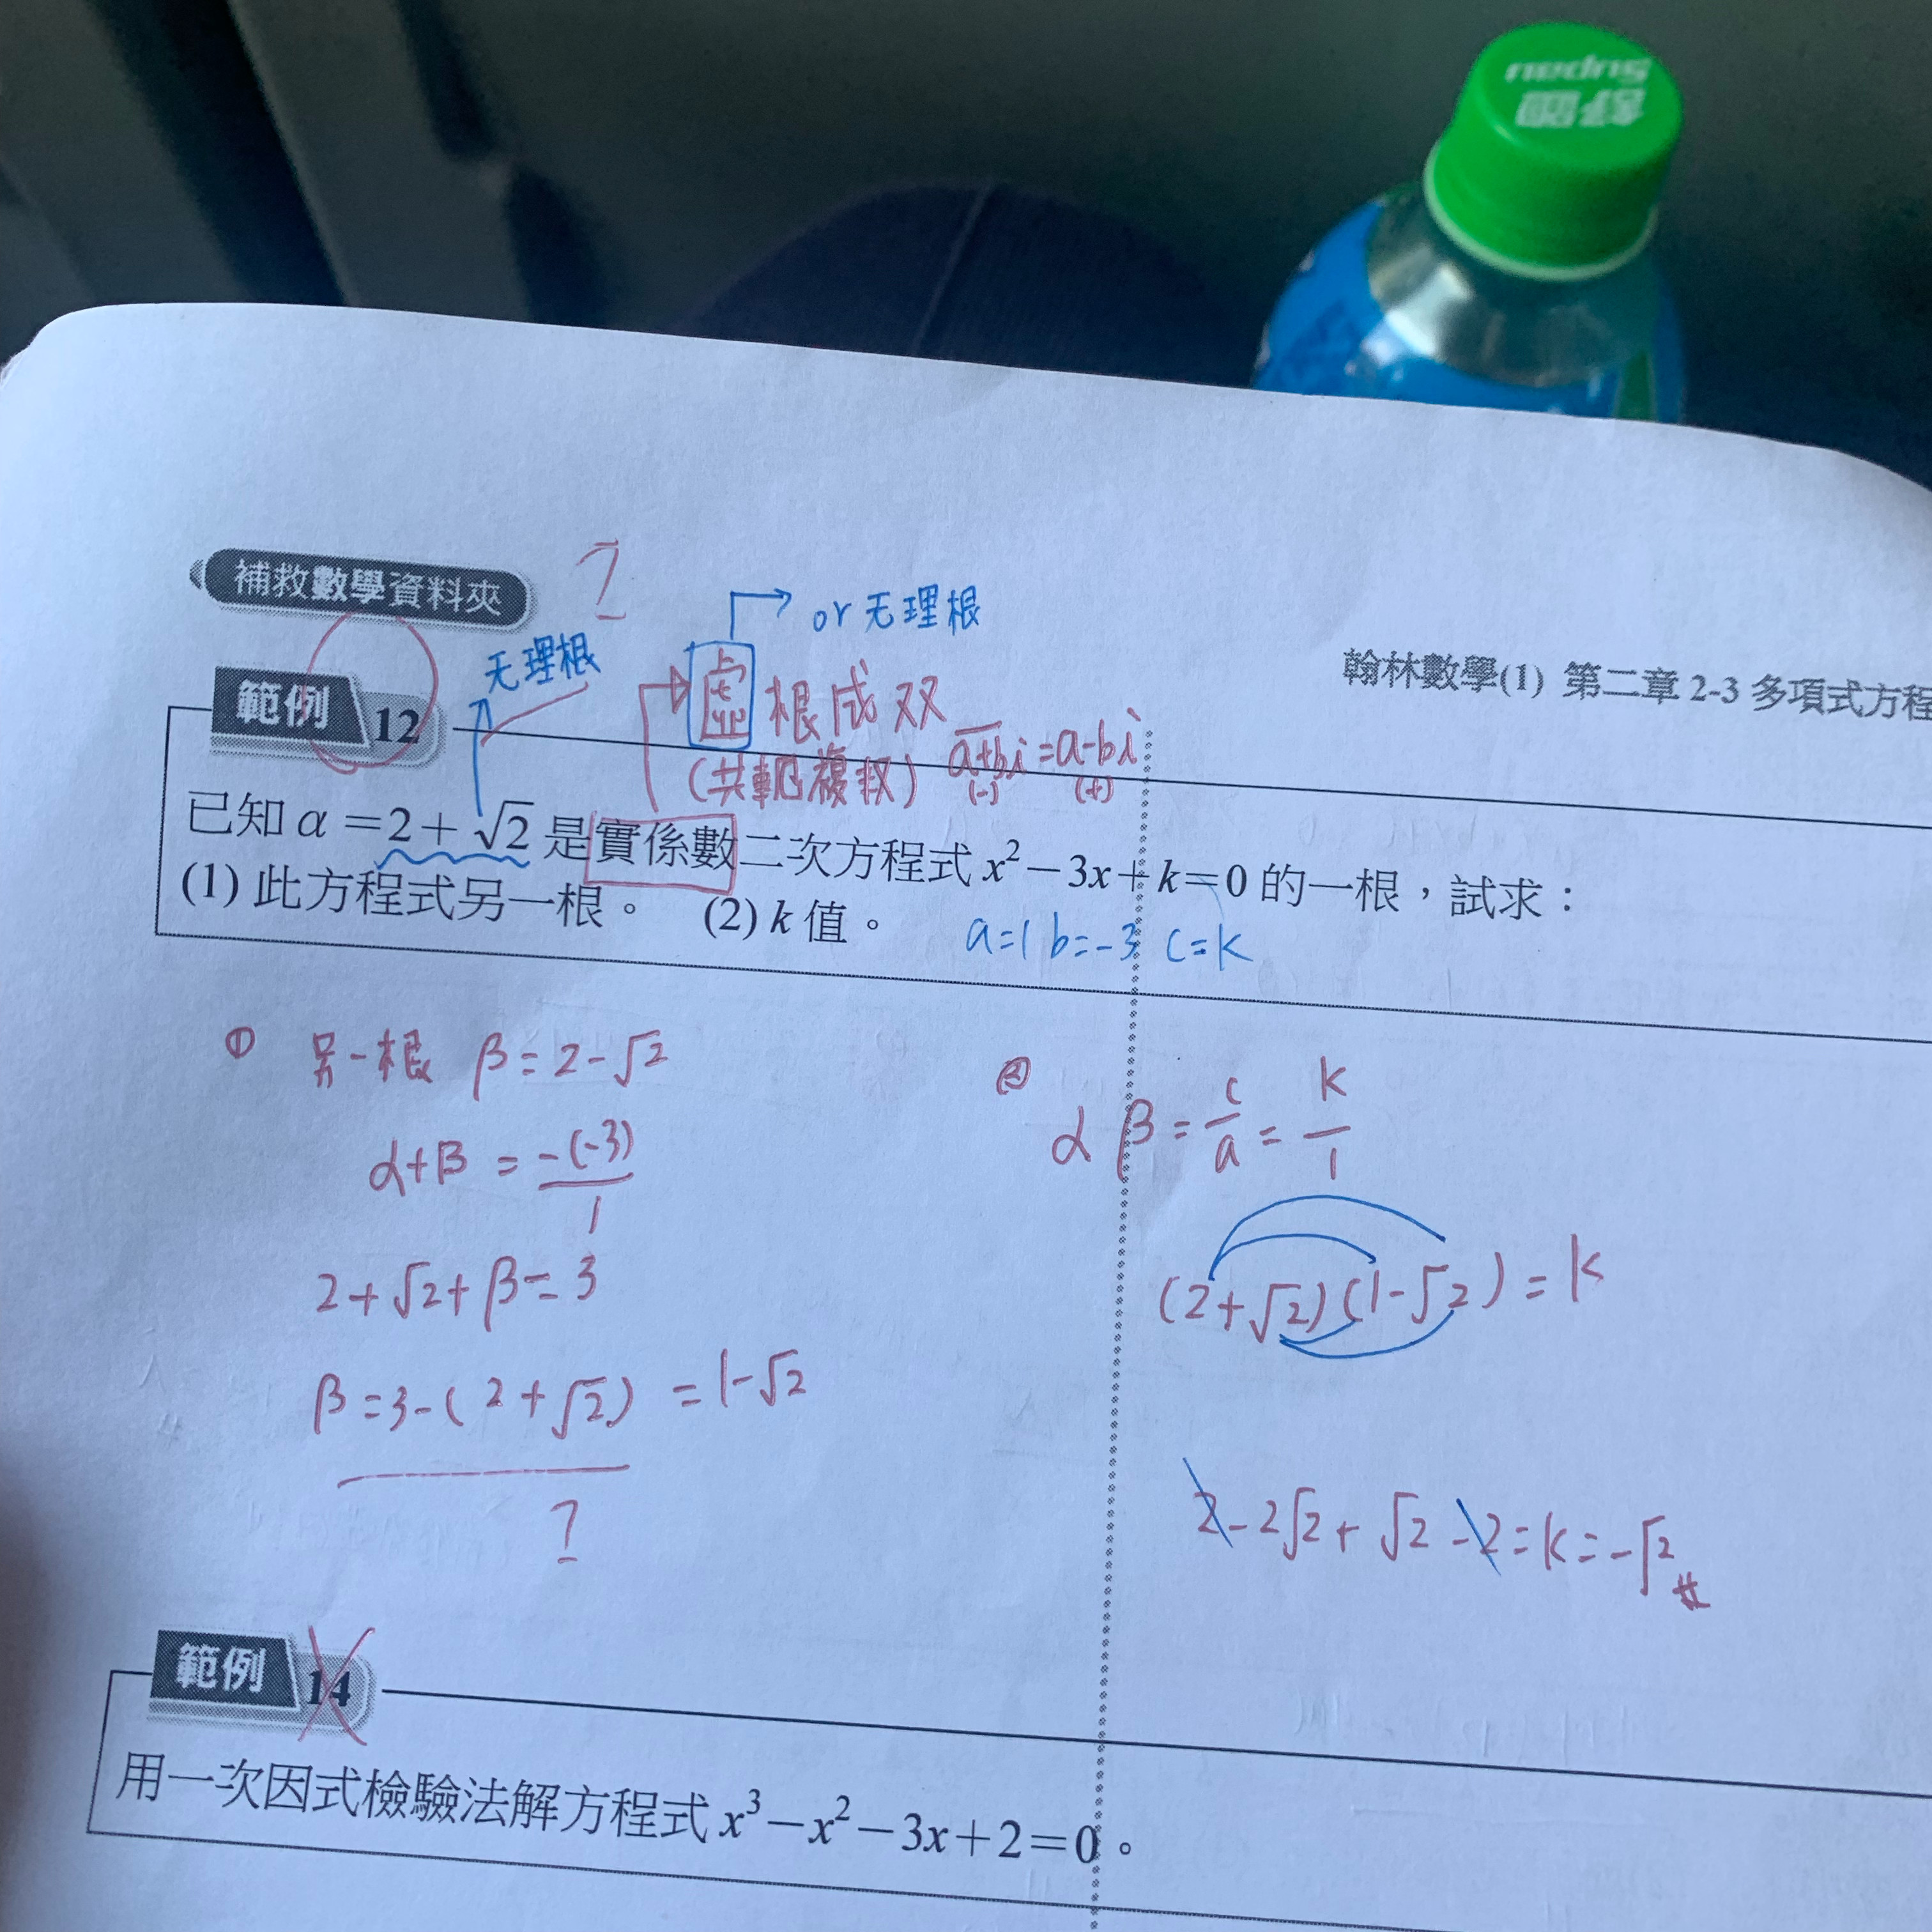 舒跑
Supau
補救數學資料夾
?
or 无理根
无理根
虛根成双
(共軛複数) a+bi=a-bi
(-) (+)
翰林數學(1) 第二章 2-3 多項式方程
範例 12
已知 α=2+√2 是實係數二次方程式 x²-3x+k=0 的一根,試求:
(1) 此方程式另一根。 (2) k 值。
a=1 b=-3 c=k
① 另一根 β=2-√2
α+β=-(-3)/1
2+√2+β=3
β=3-(2+√2)=1-√2
?
② αβ=c/a=k/1
(2+√2)(1-√2)=k
2-2√2+√2-2=k=-√2 #
範例 14
用一次因式檢驗法解方程式 x³-x²-3x+2=0。